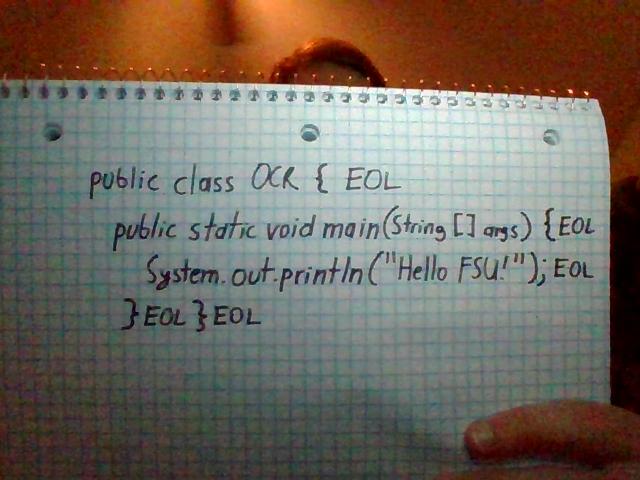 public class OCR { EOL
public static void main(String [] args) {EOL
System.out.println("Hello FSU!"); EOL
}EOL }EOL